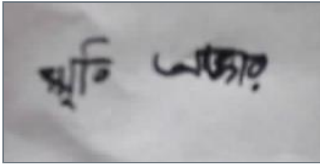 স্মৃতি আক্তার